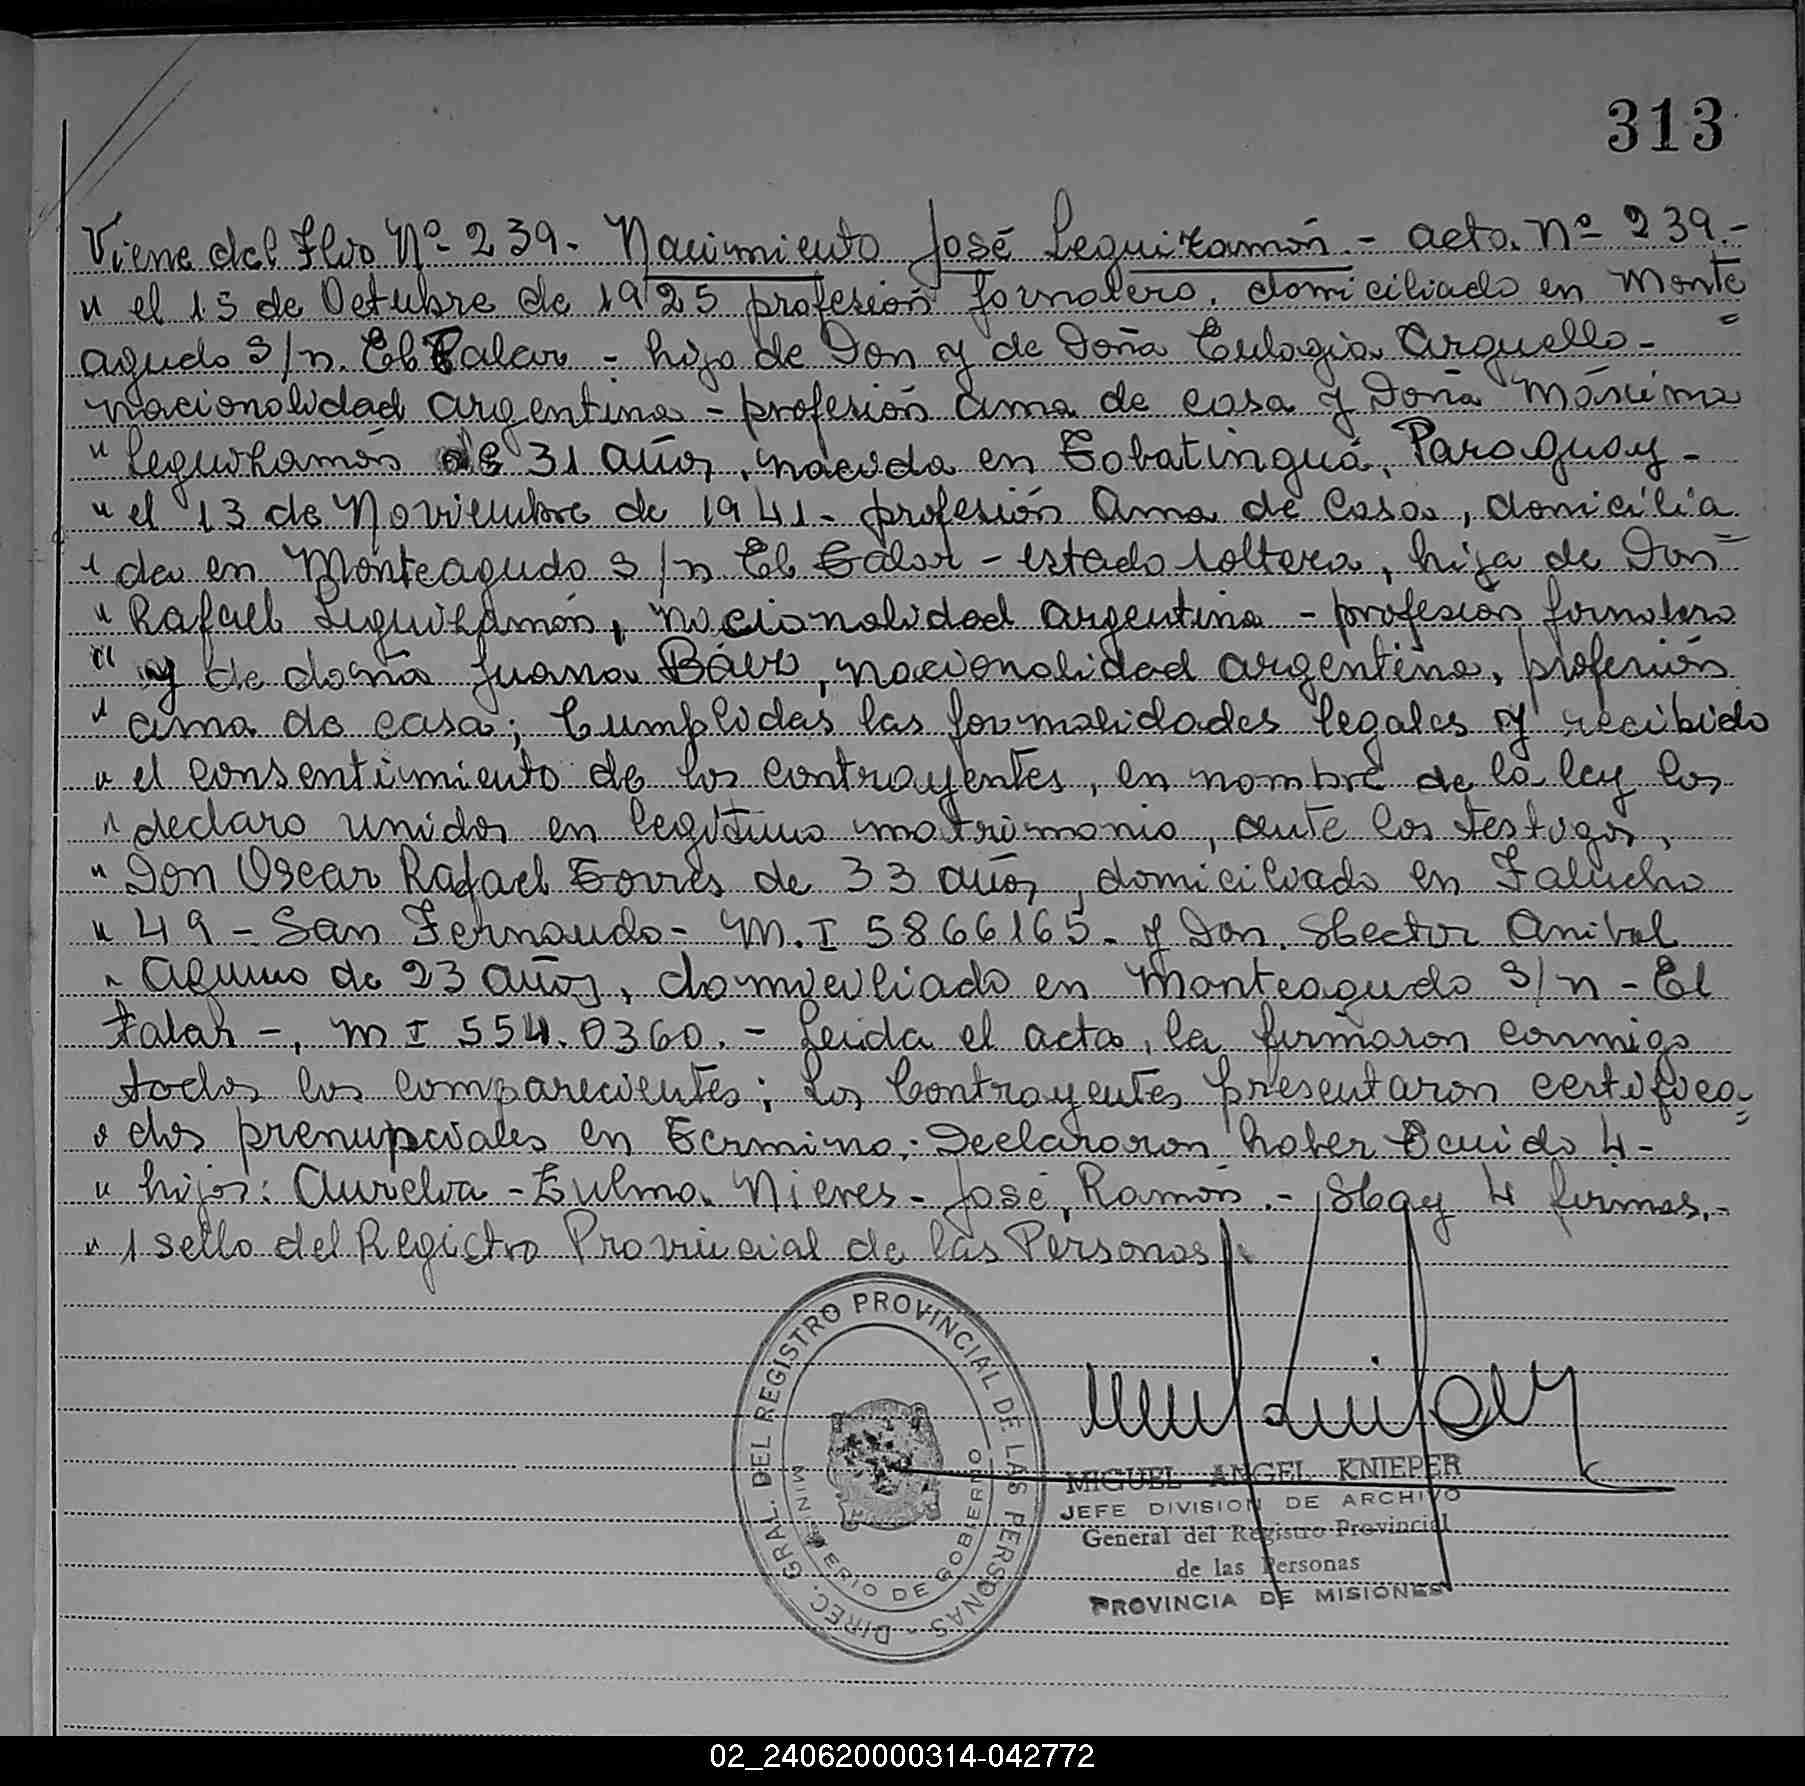 313
Viene del Flio Nº 239. Nacimiento José Leguizamón. - acta. Nº 239.-
" el 15 de Octubre de 1925 profesión Jornalero. domiciliado en Monte
agudo S/n. El Talar - hijo de Don y de Doña Eulogia Arguello -
nacionalidad argentina - profesión ama de casa y Doña Máxima
" Leguizamón de 31 años, nacida en Tobatinguá, Paraguay -
" el 13 de Noviembre de 1941 - profesión Ama de Casa, domicilia
" da en Monteagudo S/n El Talar - estado soltera, hija de Don
" Rafael Leguizamón, nacionalidad argentina - profesión Jornalero
" y de doña Juana Báez, nacionalidad argentina, profesión
" ama de casa; Cumplidas las formalidades legales y recibido
" el consentimiento de los contrayentes, en nombre de la ley los
" declaro unidos en legítimo matrimonio, ante los testigos,
" Don Oscar Rafael Torres de 33 años, domiciliado en Falucho
" 49 - San Fernando - M.I 5866165. y Don. Hector Anibal
" Aquino de 23 años, domiciliado en Monteagudo S/n - El
Talar -, M I 554.0360. - Leida el acta, la firmaron conmigo
todos los comparecientes; Los Contrayentes presentaron certifica-
" dos prenupciales en Termino. Declararon haber Tenido 4 -
" hijos: Aurelia - Zulma Nieves - José, Ramón. - Hay 4 firmas.-
" 1 sello del Registro Provincial de las Personas.
DIREC. GRAL. DEL REGISTRO PROVINCIAL DE LAS PERSONAS
MINISTERIO DE GOBIERNO
MIGUEL ANGEL KNIEPER
JEFE DIVISION DE ARCHIVO
General del Registro Provincial
de las Personas
PROVINCIA DE MISIONES
02_240620000314-042772